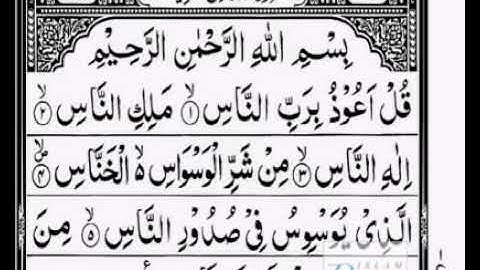 بِسْمِ اللهِ الرَّحْمٰنِ الرَّحِيْمِ
قُلْ اَعُوْذُ بِرَبِّ النَّاسِ ۙ﴿۱﴾ مَلِكِ النَّاسِ ۙ﴿۲﴾
اِلٰهِ النَّاسِ ۙ﴿۳﴾ مِنْ شَرِّ الْوَسْوَاسِ ۙ الْخَنَّاسِ ۙ﴿۴﴾
الَّذِیْ یُوَسْوِسُ فِیْ صُدُوْرِ النَّاسِ ۙ﴿۵﴾ مِنَ